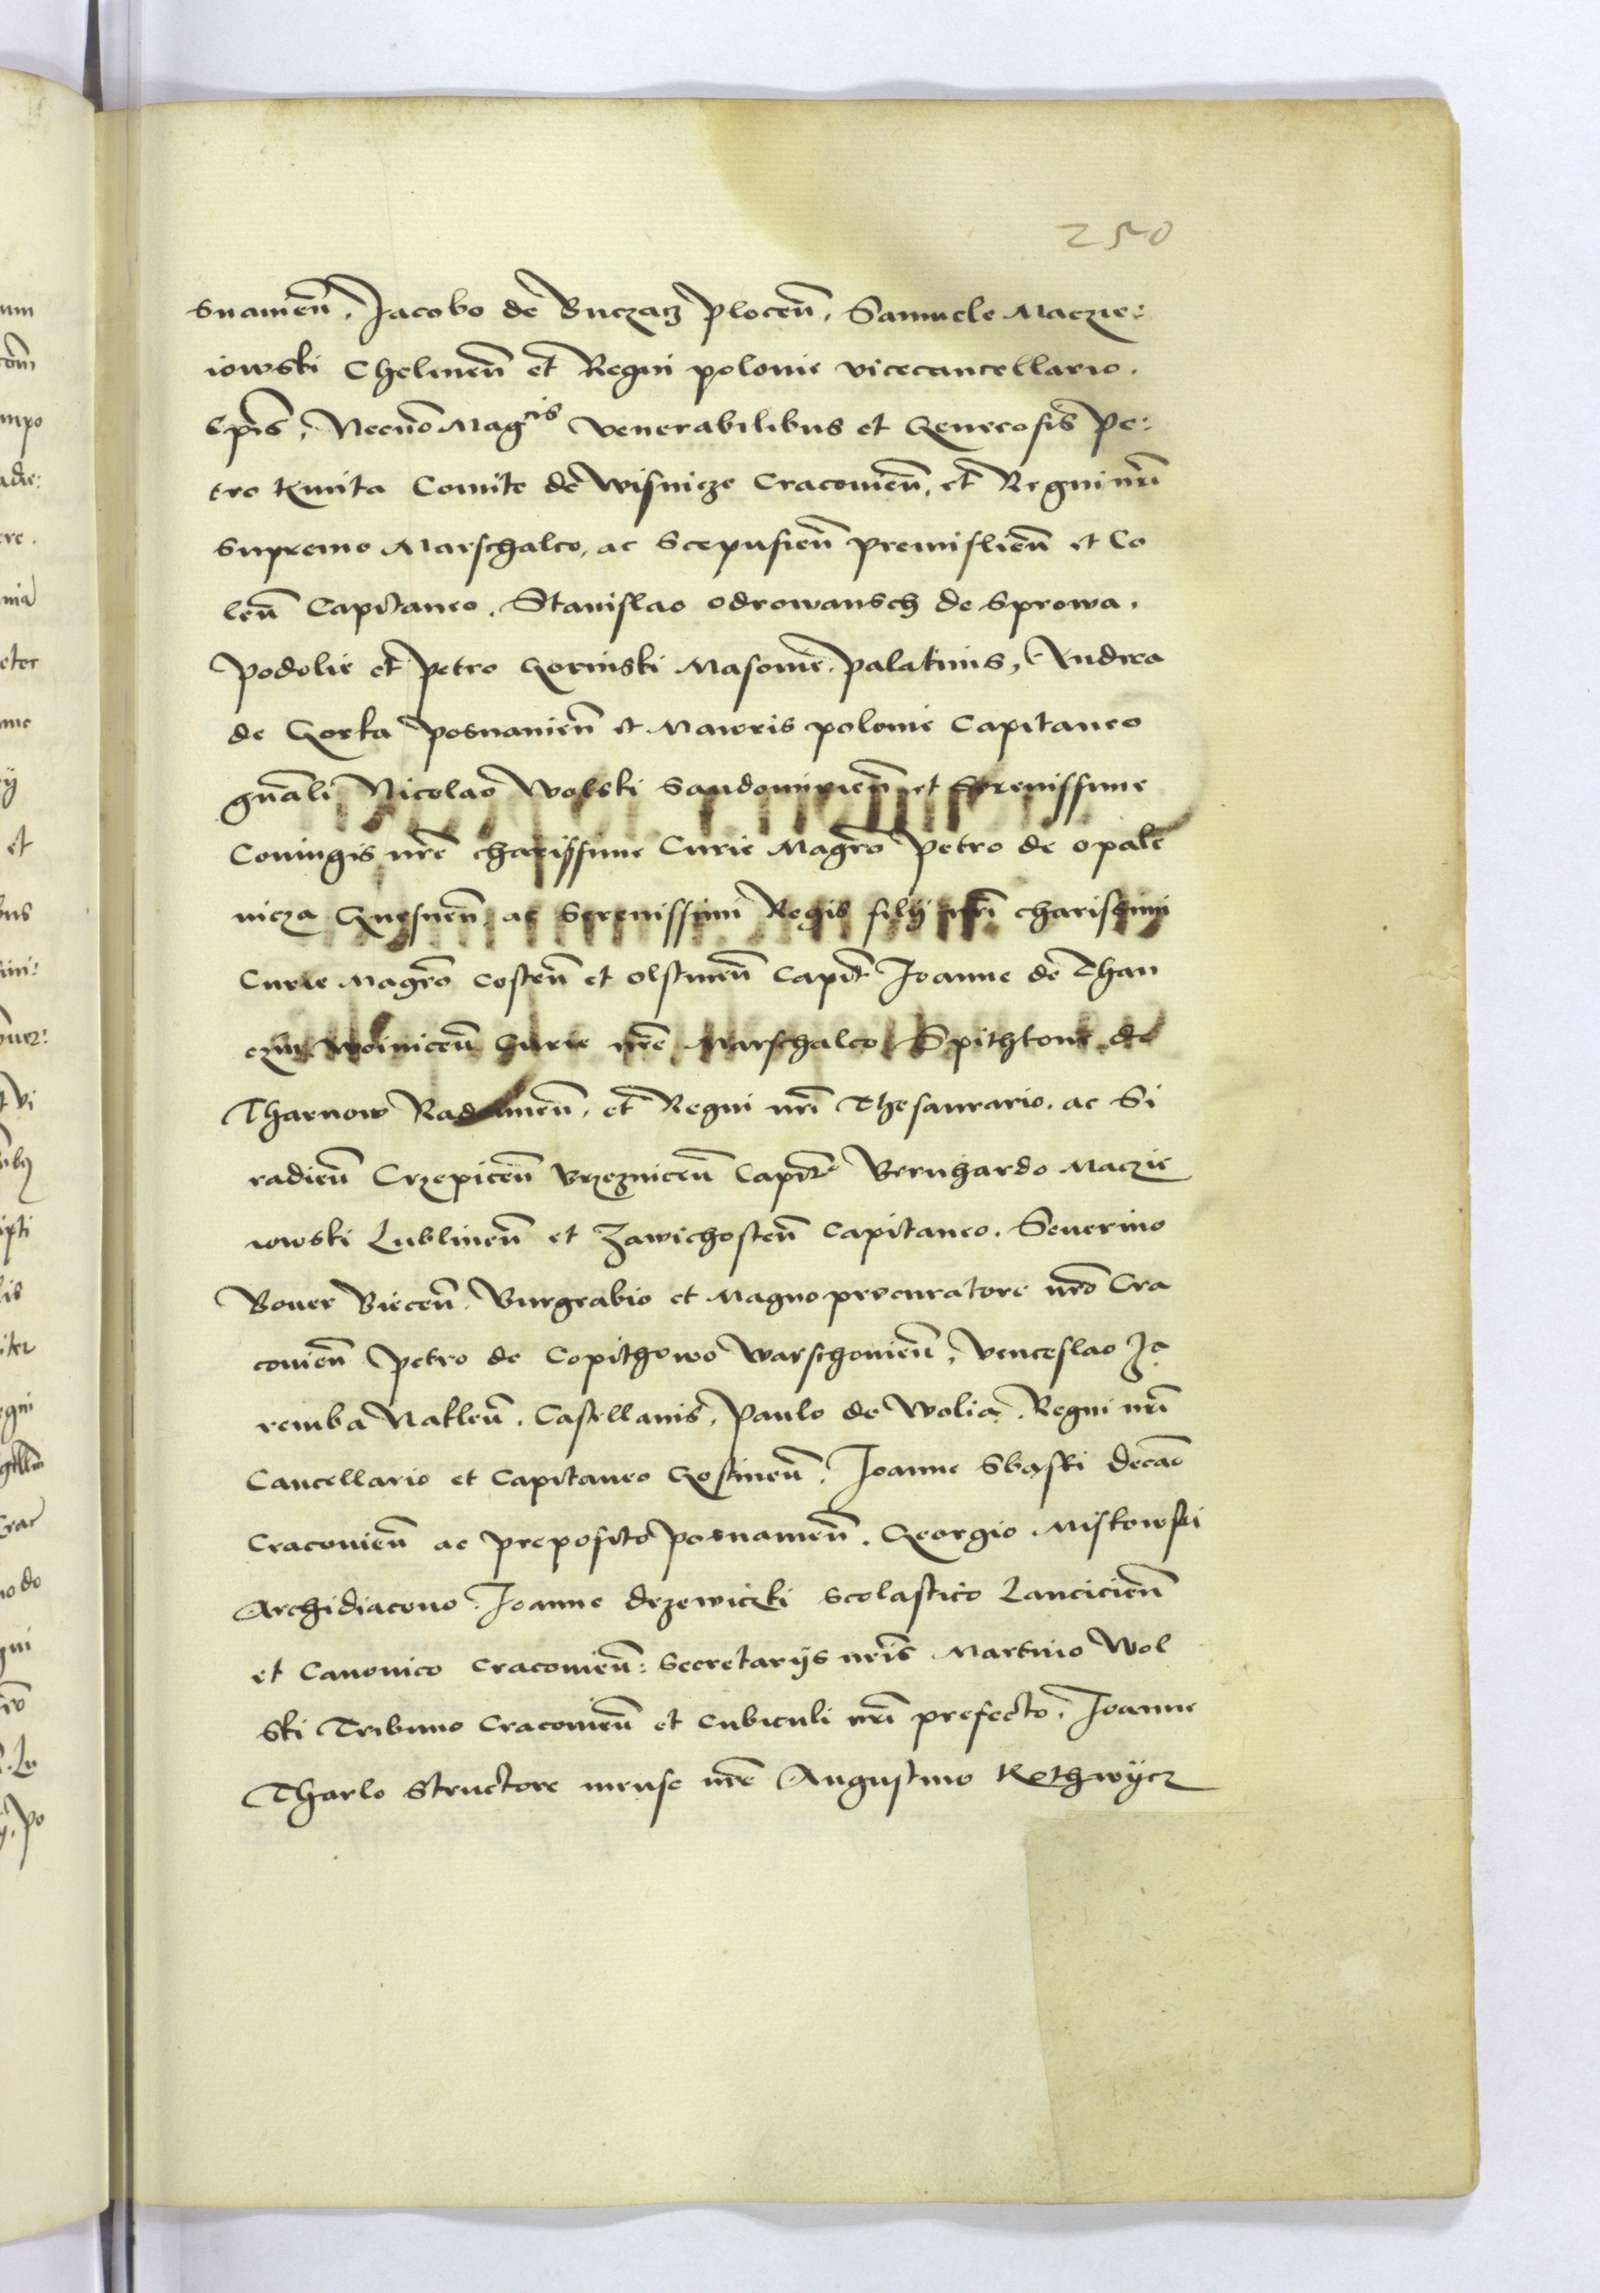 250
snanien̄. Jacobo de Buczacz plocen̄. Samuele Maczie:
iowski Chelmen̄ et Regni polonie vicecancellario.
Ep̄is, Necno Mag^cis venerabilibus et Generosis Pe:
tro kmita Comite de wisnicze Cracovien̄. et Regni nr̄i
Supremo Marschalco. ac Scepusien̄ premislien̄ et Co
len̄ Capitaneo. Stanislao odrowansch de Sprowa.
Podolie et petro Gorinski Masovie. palatinis, Andrea
de Gorka posnanien̄ et Maioris polonie Capitaneo
gn̄ali Nicolao Wolski sandomirien̄ et Serenissime
Coniugis nr̄e charissime Curie Magr̄o Petro de opale
nicza Gnesnen̄ ac Serenissimi Regis filij nr̄i charissimi
Curie Magr̄o costen̄ et olstinen̄ Capit̄ Joanne de Than
czin woinicen̄ Curie nr̄e Marschalco Spithkone de
Tharnow Radomien̄. et Regni nr̄i Thesaurario. ac Si
radien̄ Crzepicen̄ Brzeznicen̄ Capit̄ Bernhardo Maczie
iowski Lublinen̄ et Zawichosten̄ Capitaneo. Severino
Boner Biecen̄. Burgrabio et Magno procuratore nr̄o Cra
covien̄ petro de Copithowo warschovien̄, Venceslao Ja
remba Naklen̄. Castellanis. Paulo de Wolia. Regni nr̄i
Cancellario et Capitaneo Gostinen̄. Joanne Sbaski decāo
Cracovien̄ ac preposito posnanien̄. Georgio Miskowski
Archidiacono. Joanne drzewiczki scolastico Lancicien̄
et Canonico Cracovien̄: Secretarijs nr̄is Martino Wol
ski Tribuno Cracovien̄ et cubiculi nr̄i prefecto. Joanne
Tharlo Structore mense nr̄e Augustino Kothwycz